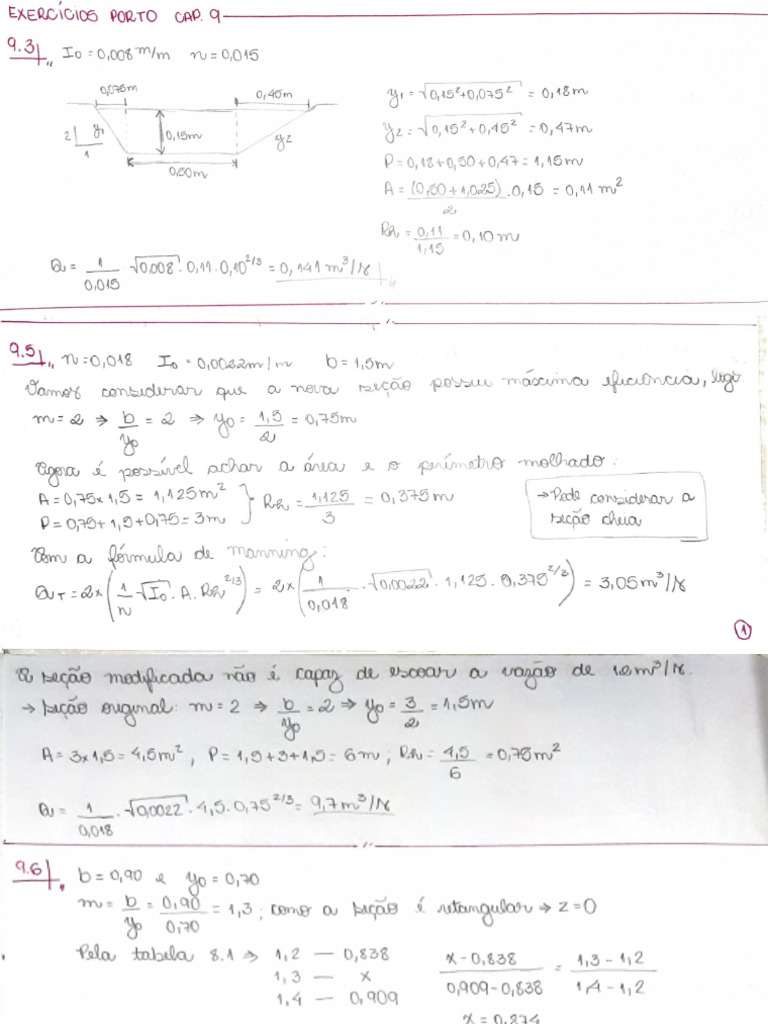 EXERCÍCIOS PORTO CAP. 9
9.3 I0 = 0,008 m/m n = 0,015
0,075m 0,45m
2 1 y1 0,15m y2
0,50m
y1 = √0,15² + 0,075² = 0,18m
y2 = √0,15² + 0,45² = 0,47m
P = 0,18 + 0,50 + 0,47 = 1,15m
A = (0,50 + 1,025) . 0,15 = 0,11 m²
2
Rh = 0,11 = 0,10 m
1,15
Q = 1 √0,008 . 0,11 . 0,10^2/3 = 0,141 m³/s
0,015
9.5 n = 0,018 I0 = 0,0022m/m b = 1,5m
Vamos considerar que a nova seção possui máxima eficiência, logo
m = 2 ⇒ b = 2 ⇒ y0 = 1,5 = 0,75m
y0 2
Agora é possível achar a área e o perímetro molhado:
A = 0,75 x 1,5 = 1,125 m²
P = 0,75 + 1,5 + 0,75 = 3m } Rh = 1,125 = 0,375m
3
→ Pode considerar a
seção cheia
Com a fórmula de manning:
QT = 2 x (1 √I0 . A . Rh^2/3) = 2 x (1 . √0,0022 . 1,125 . 0,375^2/3) = 3,05 m³/s
n 0,018
1
A seção modificada não é capaz de escoar a vazão de 12m³/s.
→ seção original: m = 2 ⇒ b = 2 ⇒ y0 = 3 = 1,5m
y0 2
A = 3 x 1,5 = 4,5m², P = 1,5 + 3 + 1,5 = 6m ; Rh = 4,5 = 0,75m²
6
Q = 1 . √0,0022 . 4,5 . 0,75^2/3 = 9,7m³/s
0,018
9.6 b = 0,90 e y0 = 0,70
m = b = 0,90 = 1,3 ; como a seção é retangular → z = 0
y0 0,70
Pela tabela 8.1 ⇒ 1,2 — 0,838
1,3 — x
1,4 — 0,909
x - 0,838 = 1,3 - 1,2
0,909 - 0,838 1,4 - 1,2
x = 0,874